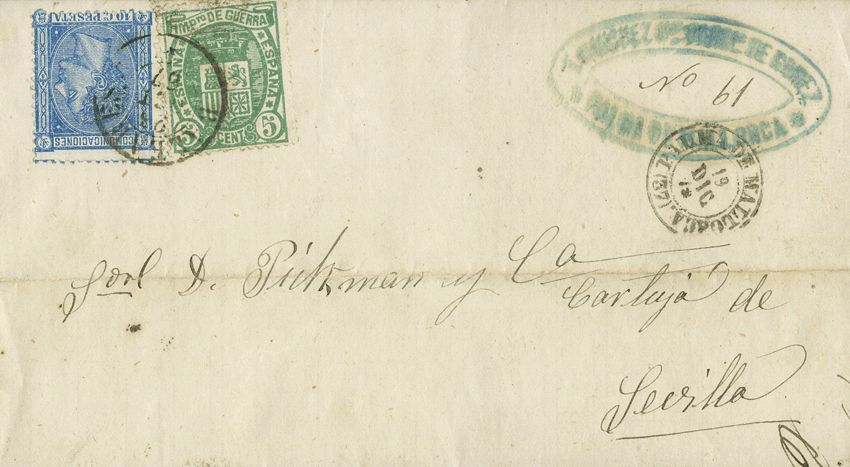 10 C. PESETA
COMUNICACIONES
IMPTO DE GUERRA
ESPAÑA
ESPAÑA
5 CENT 5
DE GOMEZ
PALMA DE MALLORCA
No 61
PALMA DE MALLORCA. (32)
19
DIC
Sres D. Pickman y Ca
Cartuja de
Sevilla